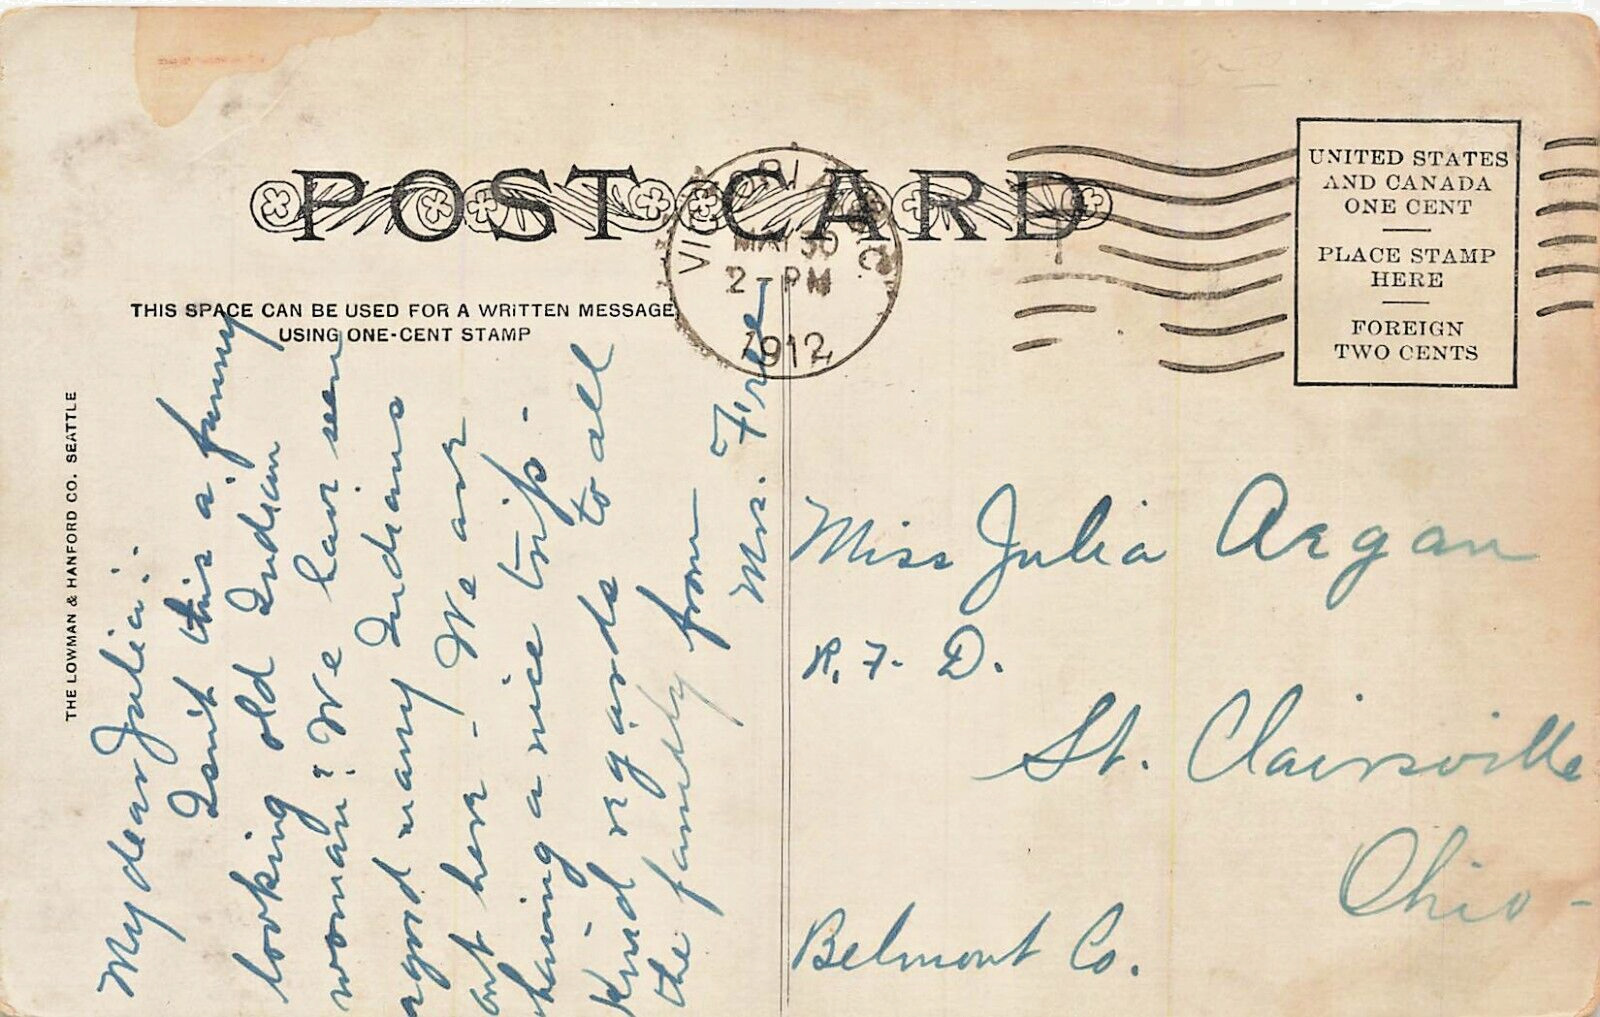 POST CARD
THIS SPACE CAN BE USED FOR A WRITTEN MESSAGE,
USING ONE-CENT STAMP
VICTORIA B.C.
MAY 30
2 - PM
1912
UNITED STATES
AND CANADA
ONE CENT
PLACE STAMP
HERE
FOREIGN
TWO CENTS
THE LOWMAN & HANFORD CO. SEATTLE
My dear Julia:
Isn't this a funny
looking old Indian
woman? We have seen
a good many Indians
out here - We are
having a nice trip -
Kind regards to all
the family from
Mrs.
Miss Julia
R. F. D.
St. Clairsville
Ohio -
Belmont Co.